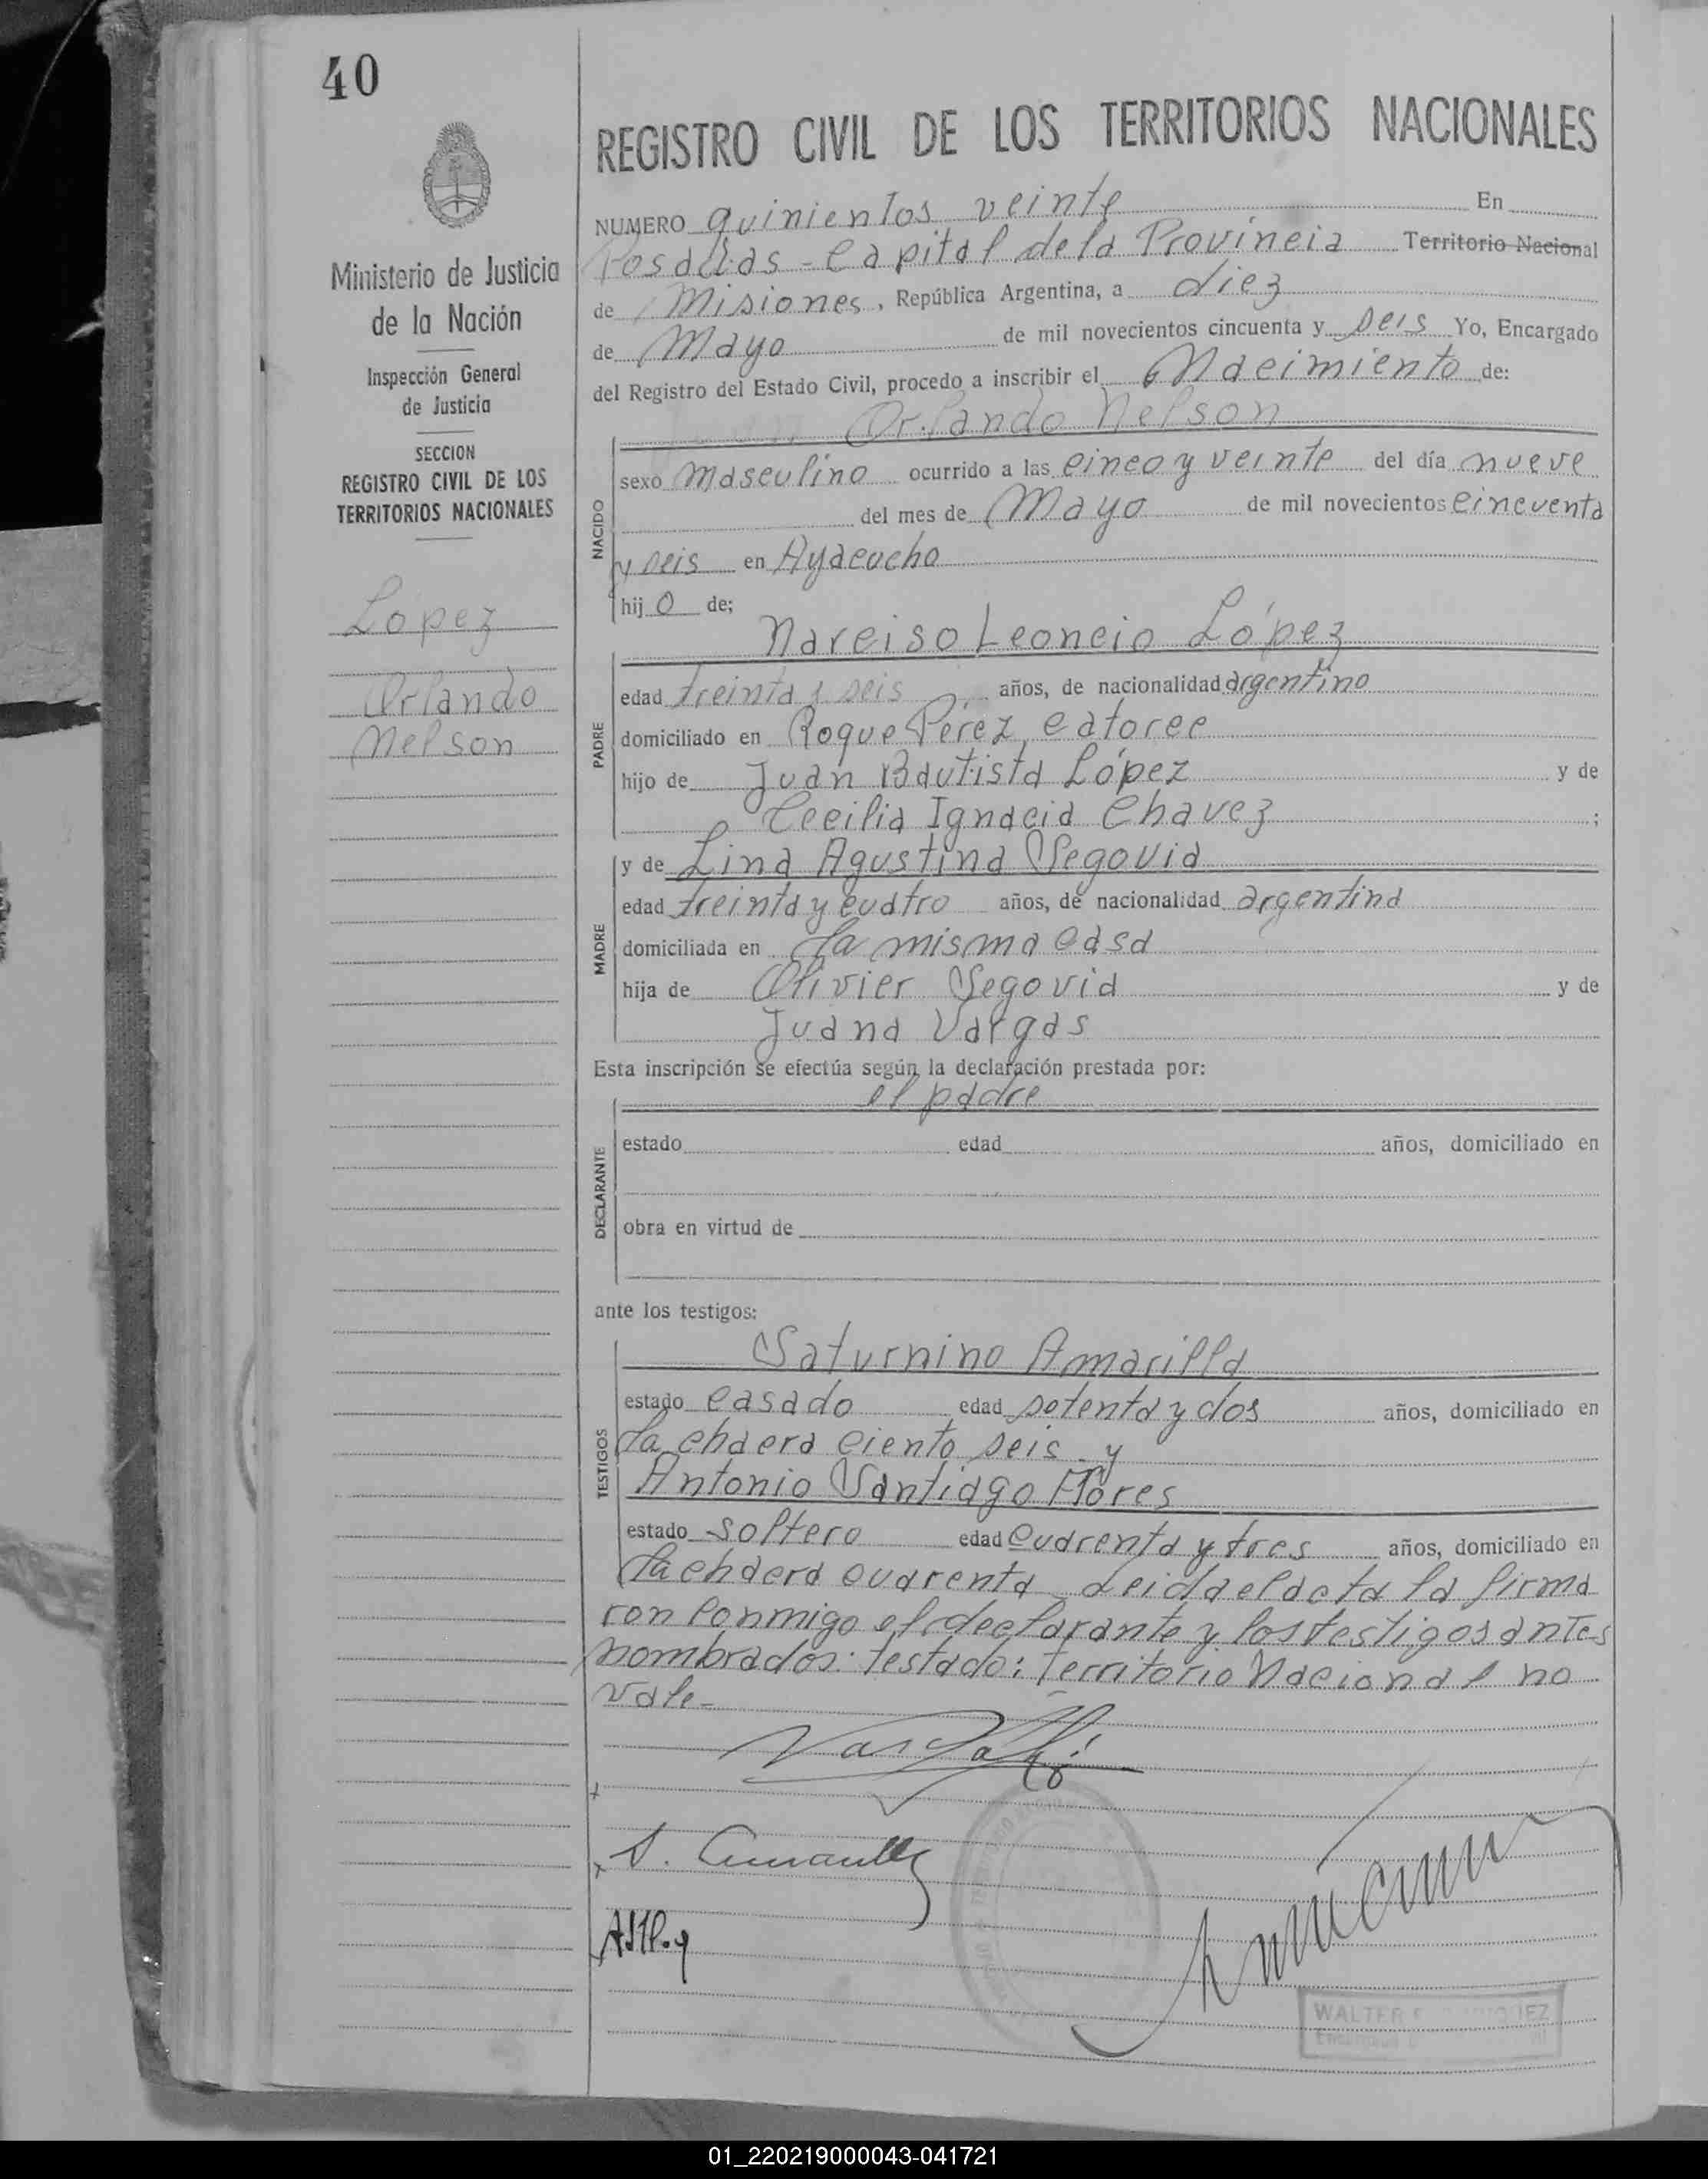 40
REGISTRO CIVIL DE LOS TERRITORIOS NACIONALES
Ministerio de Justicia
de la Nación
Inspección General
de Justicia
SECCION
REGISTRO CIVIL DE LOS
TERRITORIOS NACIONALES
López
Orlando
Nelson
NUMERO quinientos veinte En
Posadas - Capital de la Provincia Territorio Nacional
de Misiones, República Argentina, a diez
de Mayo de mil novecientos cincuenta y seis Yo, Encargado
del Registro del Estado Civil, procedo a inscribir el Nacimiento de:
Orlando Nelson
NACIDO
sexo masculino ocurrido a las cinco y veinte del día nueve
del mes de Mayo de mil novecientos cincuenta
y seis en Ayacucho
hijo de;
Narciso Leoncio López
PADRE
edad treinta y seis años, de nacionalidad argentino
domiciliado en Roque Pérez catorce
hijo de Juan Bautista López y de
Cecilia Ignacia Chavez ;
MADRE
y de Lina Agustina Segovia
edad treinta y cuatro años, de nacionalidad argentina
domiciliada en la misma casa
hija de Olivier Segovia y de
Juana Vargas
Esta inscripción se efectúa según la declaración prestada por:
el padre
DECLARANTE
estado edad años, domiciliado en
obra en virtud de
ante los testigos:
Saturnino Amarilla
TESTIGOS
estado casado edad setenta y dos años, domiciliado en
la chacra ciento seis y
Antonio Santiago Flores
estado soltero edad cuarenta y tres años, domiciliado en
la chacra cuarenta leida el acta la firma
con conmigo el declarante y los testigos antes
nombrados: testado: Territorio Nacional no
vale-
WALTER
01_220219000043-041721